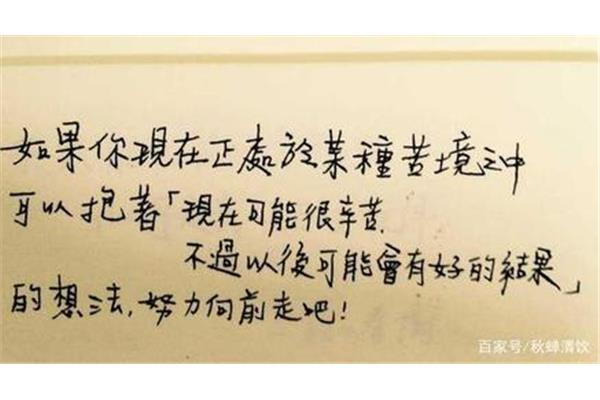 如果你現在正處於某種苦境之中
可以抱著「現在可能很辛苦.
不過以後可能會有好的結果」
的想法,努力向前走吧!
百家号/秋蝉清饮